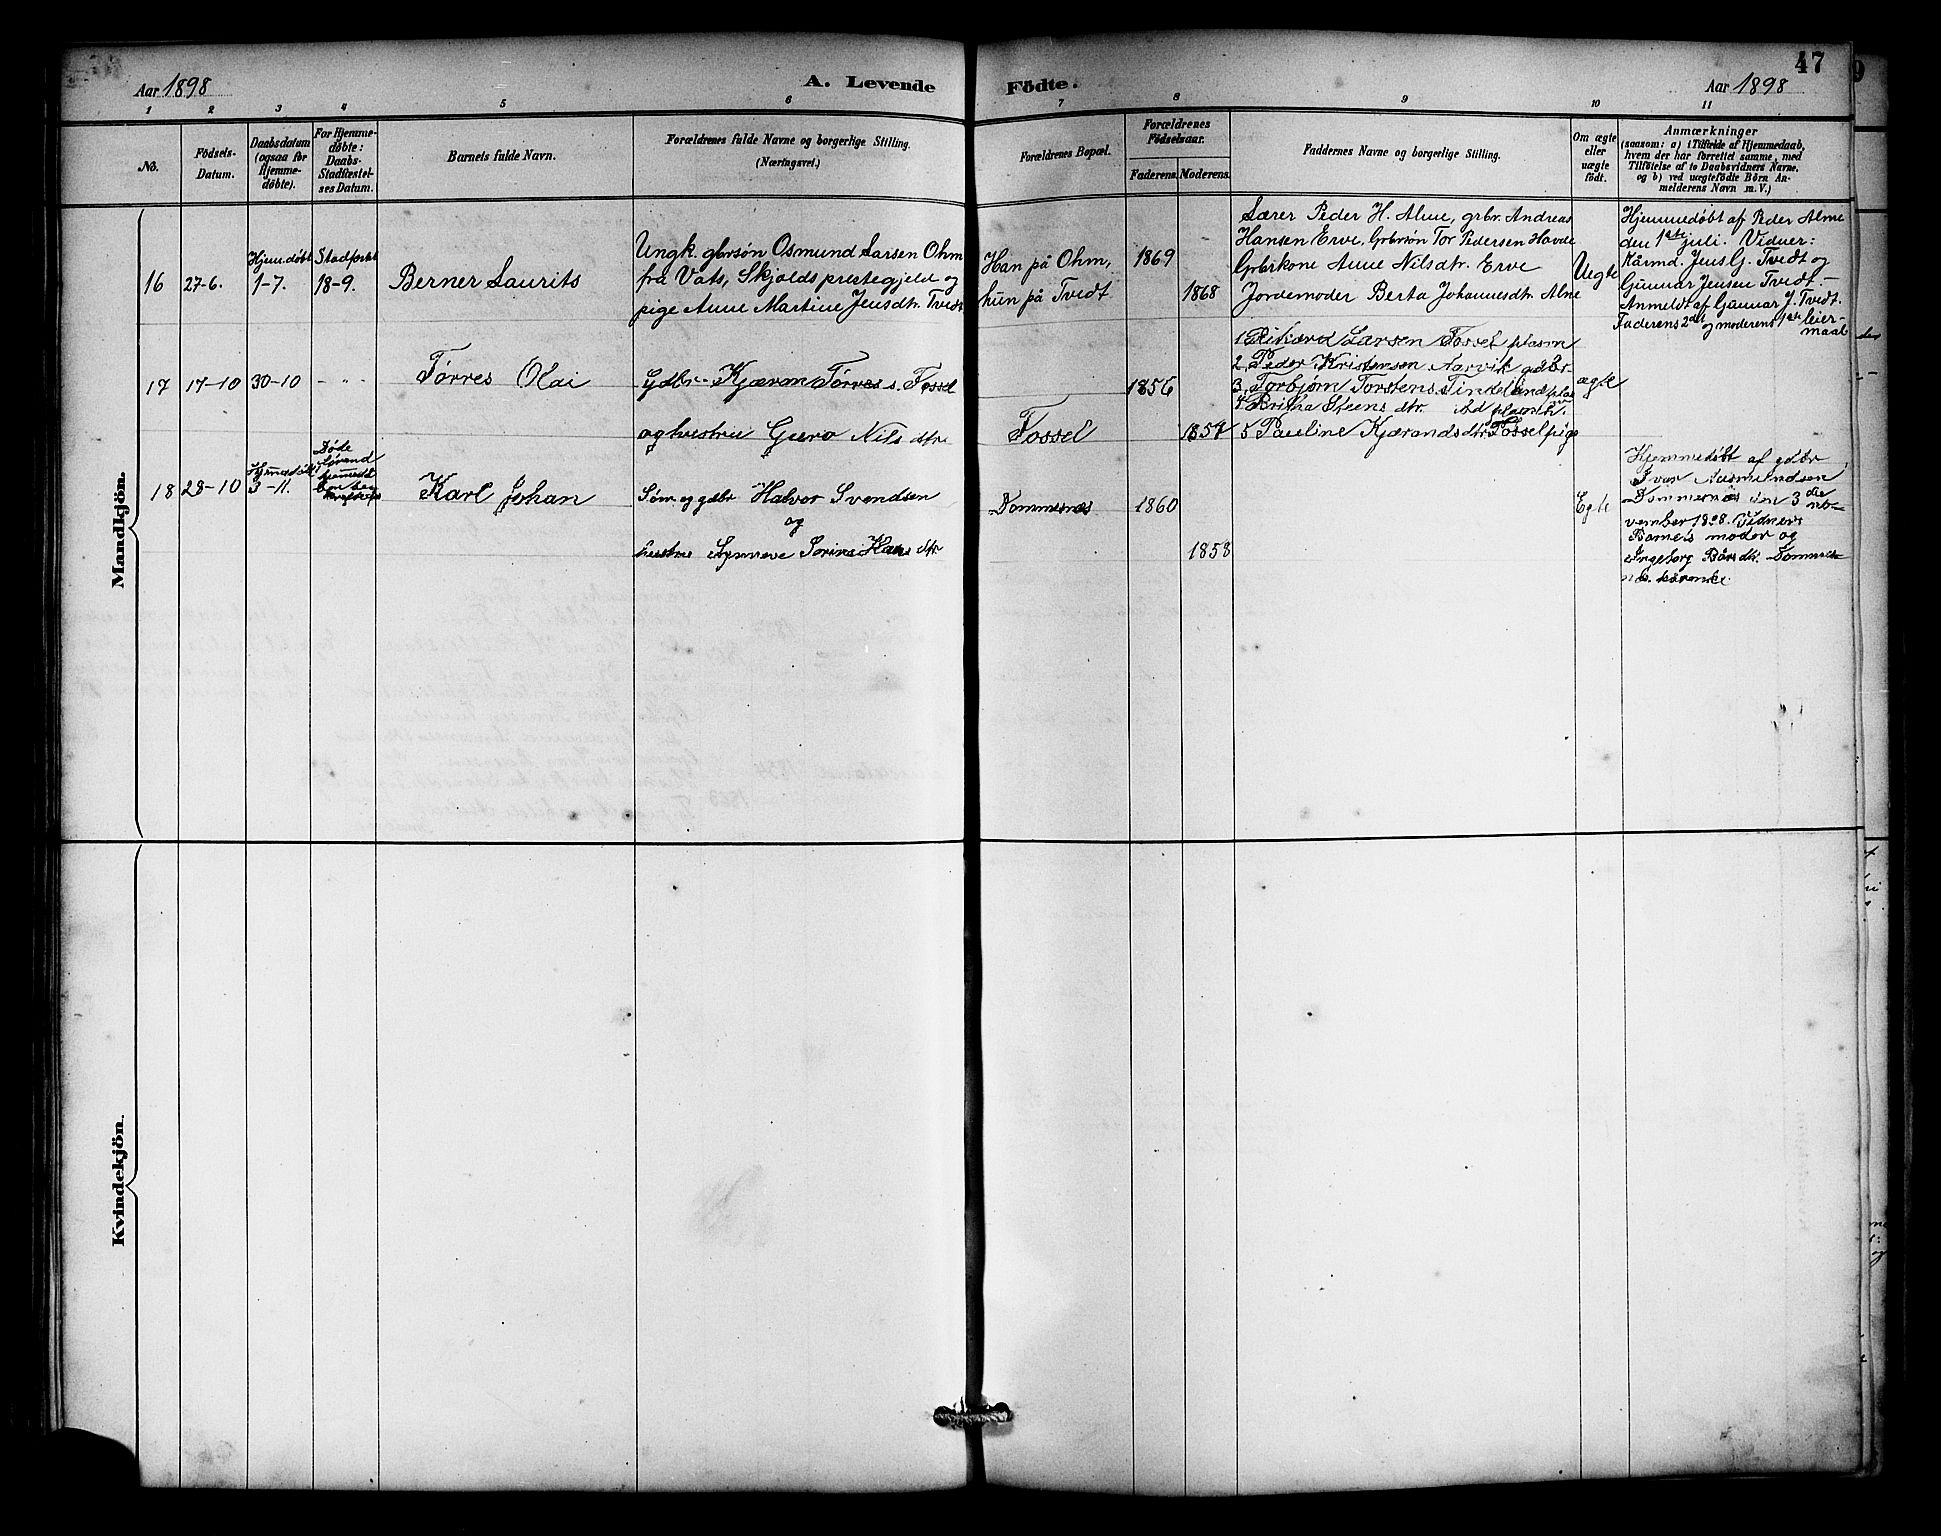 Aar 1898
A. Levende Födte.
Aar 1898
47
1 2 3 4 5 6 7 8 9 10 11
No.
Födsels-
Datum.
Daabsdatum
(ogsaa for
Hjemme-
døbte).
For Hjemme-
døbte:
Daabs-
Stadfæstel-
ses Datum.
Barnets fulde Navn.
Forældrenes fulde Navne og borgerlige Stilling.
(Næringsvei.)
Forældrenes Bopæl.
Forældrenes
Födselsaar.
Faderens. Moderens.
Faddernes Navne og borgerlige Stilling.
Om ægte
eller
uægte
født.
Anmærkninger
(saasom: a) i Tilfælde af Hjemmedaab,
hvem der har forrettet samme, med
Tilføielse af to Daabsvidners Navne,
og b) ved uægtefødte Börn An-
melderens Navn m. V.)
Mandkjön.
16
27-6.
Hjem.døbt
1-7.
18-9.
Berner Laurits
Ungk. gbrsøn Osmund Larsen Ohm
fra Vats, Skjolds prestegjeld og
pige Anne Martine Jensdtr. Tvedt
Han på Ohm,
hun på Tvedt
1869
1868
Lærer Peder H. Alme, grbr. Andreas
Hansen Erve, Grbrsøn Tor Pedersen Havde
Grbrkone Anne Nilsdtr. Erve
Jordemoder Berta Johannesdtr. Alme
Uegte
Hjemmedøbt af Peder Alme
den 1ste juli. Vidner:
Kårmd. Jens G. Tvedt og
Gunnar Jensen Tvedt –
Anmeldt af Gunnar J. Tvedt.
Faderens 2det og moderens 1ste leier-
maal
17
17-10
30-10
- " -
Tørres Olai
Gdbr. Kjæran Tørres s. Fossel
og hustru Guro Nils dtr
Fossel
1856
1857
1 Rikard Larsen Fossel plasm
2 Peder Kristensen Narvik gdbr
3 Torbjørn Torstens
4 Britha Steens dtr.
5 Pauline Kjærands dtr Fossel pige
ægte
18
28-10
3-11.
Døde
Karl Johan
Søm. og gdbr Halvor Svendsen
og
hustru Synneve Sorine Hans dtr
Dommersnæs
1860
1858
Egte
Hjemmedøbt af gdbr
Ivar Aasmundsen
Dommersnæs den 3die no-
vember 1898. Vidner:
Barnets moder og
Ingeborg Bårdsdtr. Dommers-
næs.
Kvindekjön.